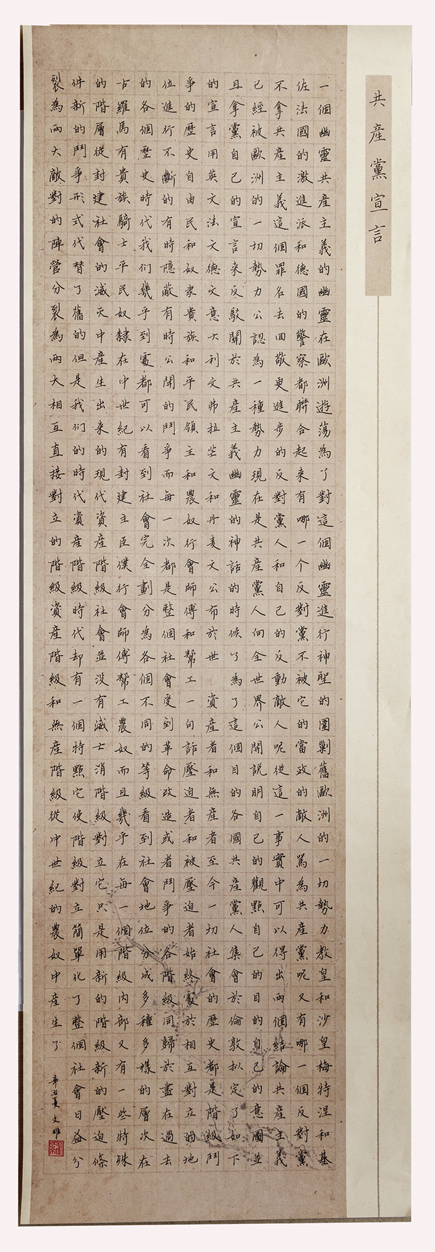 共產黨宣言
一個幽靈共產主義的幽靈在歐洲遊蕩為了對這個幽靈進行神聖的圍剿舊歐洲的一切勢力教皇和沙皇梅特涅和基
佐法國的激進派和德國的警察都聯合起來有哪一个反對黨不被它的當政的敵人罵為共產黨呢又有哪一個反對黨
不拿共產主義這個罪名去回敬更進步的反對黨人和自己的反動敵人呢從這一事實中可以得出兩個結論共產主義
已經被歐洲的一切勢力公認為一種勢力現在是共產黨人向全世界公開說明自己的觀點自己的目的自己的意圖並
且拿黨自己的宣言來反駁關於共產主義幽靈的神話的時候了為了這個目的各國共產黨人集會於倫敦擬定了如下
的宣言用英文法文德文意大利文弗拉芒文和丹麥文公布於世 資產者和無產者至今一切社會的歷史都是階級鬥
爭的歷史自由民和奴隸貴族和平民領主和農奴行會師傅和幫工一句話壓迫者和被壓迫者始終處於相互對立的地
位進行不斷的有時隱蔽有時公開的鬥爭而每一次都是整個社會受到革命改造或者鬥爭的各階級同歸於盡在過去
的各個歷史時代我们幾乎到處都可以看到社會完全劃分為各個不同的等級看到社會地位分成多種多樣的層次在
古羅馬有貴族騎士平民奴隸在中世紀有封建主臣僕行會師傅幫工農奴而且幾乎在每一個階級內部又有一些特殊
的階層從封建社會的滅亡中產生出來的現代資產階級社會並沒有滅亡消階級對立它只是用新的階級新的壓迫條
件新的鬥爭形式代替了舊的但是我们的時代資產階級時代却有一個特點它使階級對立簡單化了整個社會日益分
裂為兩大敵對的陣營分裂為兩大相互直接對立的階級資產階級和無產階級從中世紀的農奴中產生了
辛丑夏文